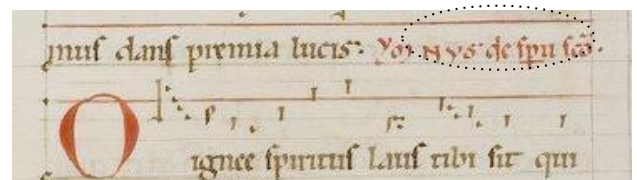 nus dans premia lucis: ymnus de spu sco.
O ignee spiritus laus tibi sit qui